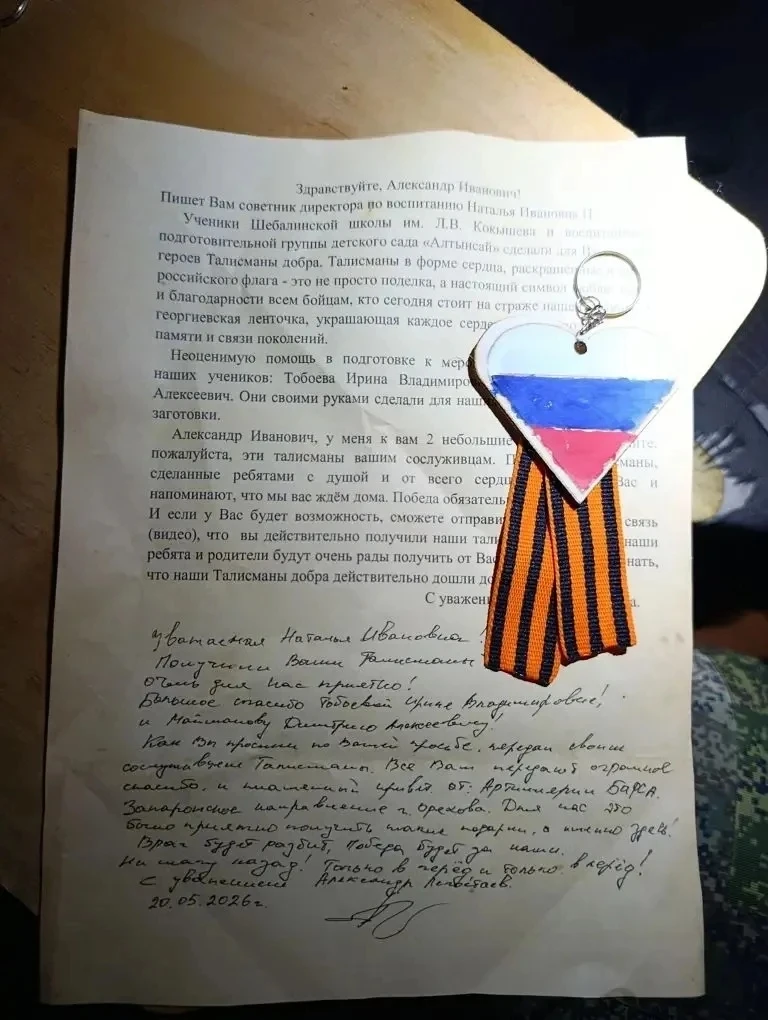 Здравствуйте, Александр Иванович!
Пишет Вам советник директора по воспитанию Наталья Ивановна П
Ученики Шебалинской школы им. Л.В. Кокышева и
подготовительной группы детского сада «Алтынсай» сделали для
героев Талисманы добра. Талисманы в форме сердца,
российского флага - это не просто поделка, а настоящий символ
и благодарности всем бойцам, кто сегодня стоит на страже
георгиевская ленточка, украшающая каждое
памяти и связи поколений.
Неоценимую помощь в подготовке к
наших учеников: Тобоева Ирина
Алексеевич. Они своими руками сделали для
заготовки.
Александр Иванович, у меня к вам 2 небольшие
пожалуйста, эти талисманы вашим сослуживцам.
сделанные ребятами с душой и от всего Вас и
напоминают, что мы вас ждём дома. Победа
И если у Вас будет возможность, сможете связь
(видео), что вы действительно получили наши наши
ребята и родители будут очень рады получить от
что наши Талисманы добра действительно дошли
С
Уважаемая Наталья Ивановна!
Получили Ваши Талисманы
очень для нас приятно!
Большое спасибо Тобоевой Ирине Владимировне!
и Майманову Дмитрию Алексеевичу!
Как Вы просили по Вашей просьбе, передал своим
сослуживцам Талисманы. Все Вам передают огромное
спасибо, и пламенный привет от: Артиллерии БАРСА.
Запорожское направление г. Орехова. Для нас это
было приятно получить такие подарки, а именно здесь!
Враг будет разбит, Победа будет за нами.
Ни шагу назад! Только в перёд и только вперёд!
С уважением Александр
20.05.2026г.